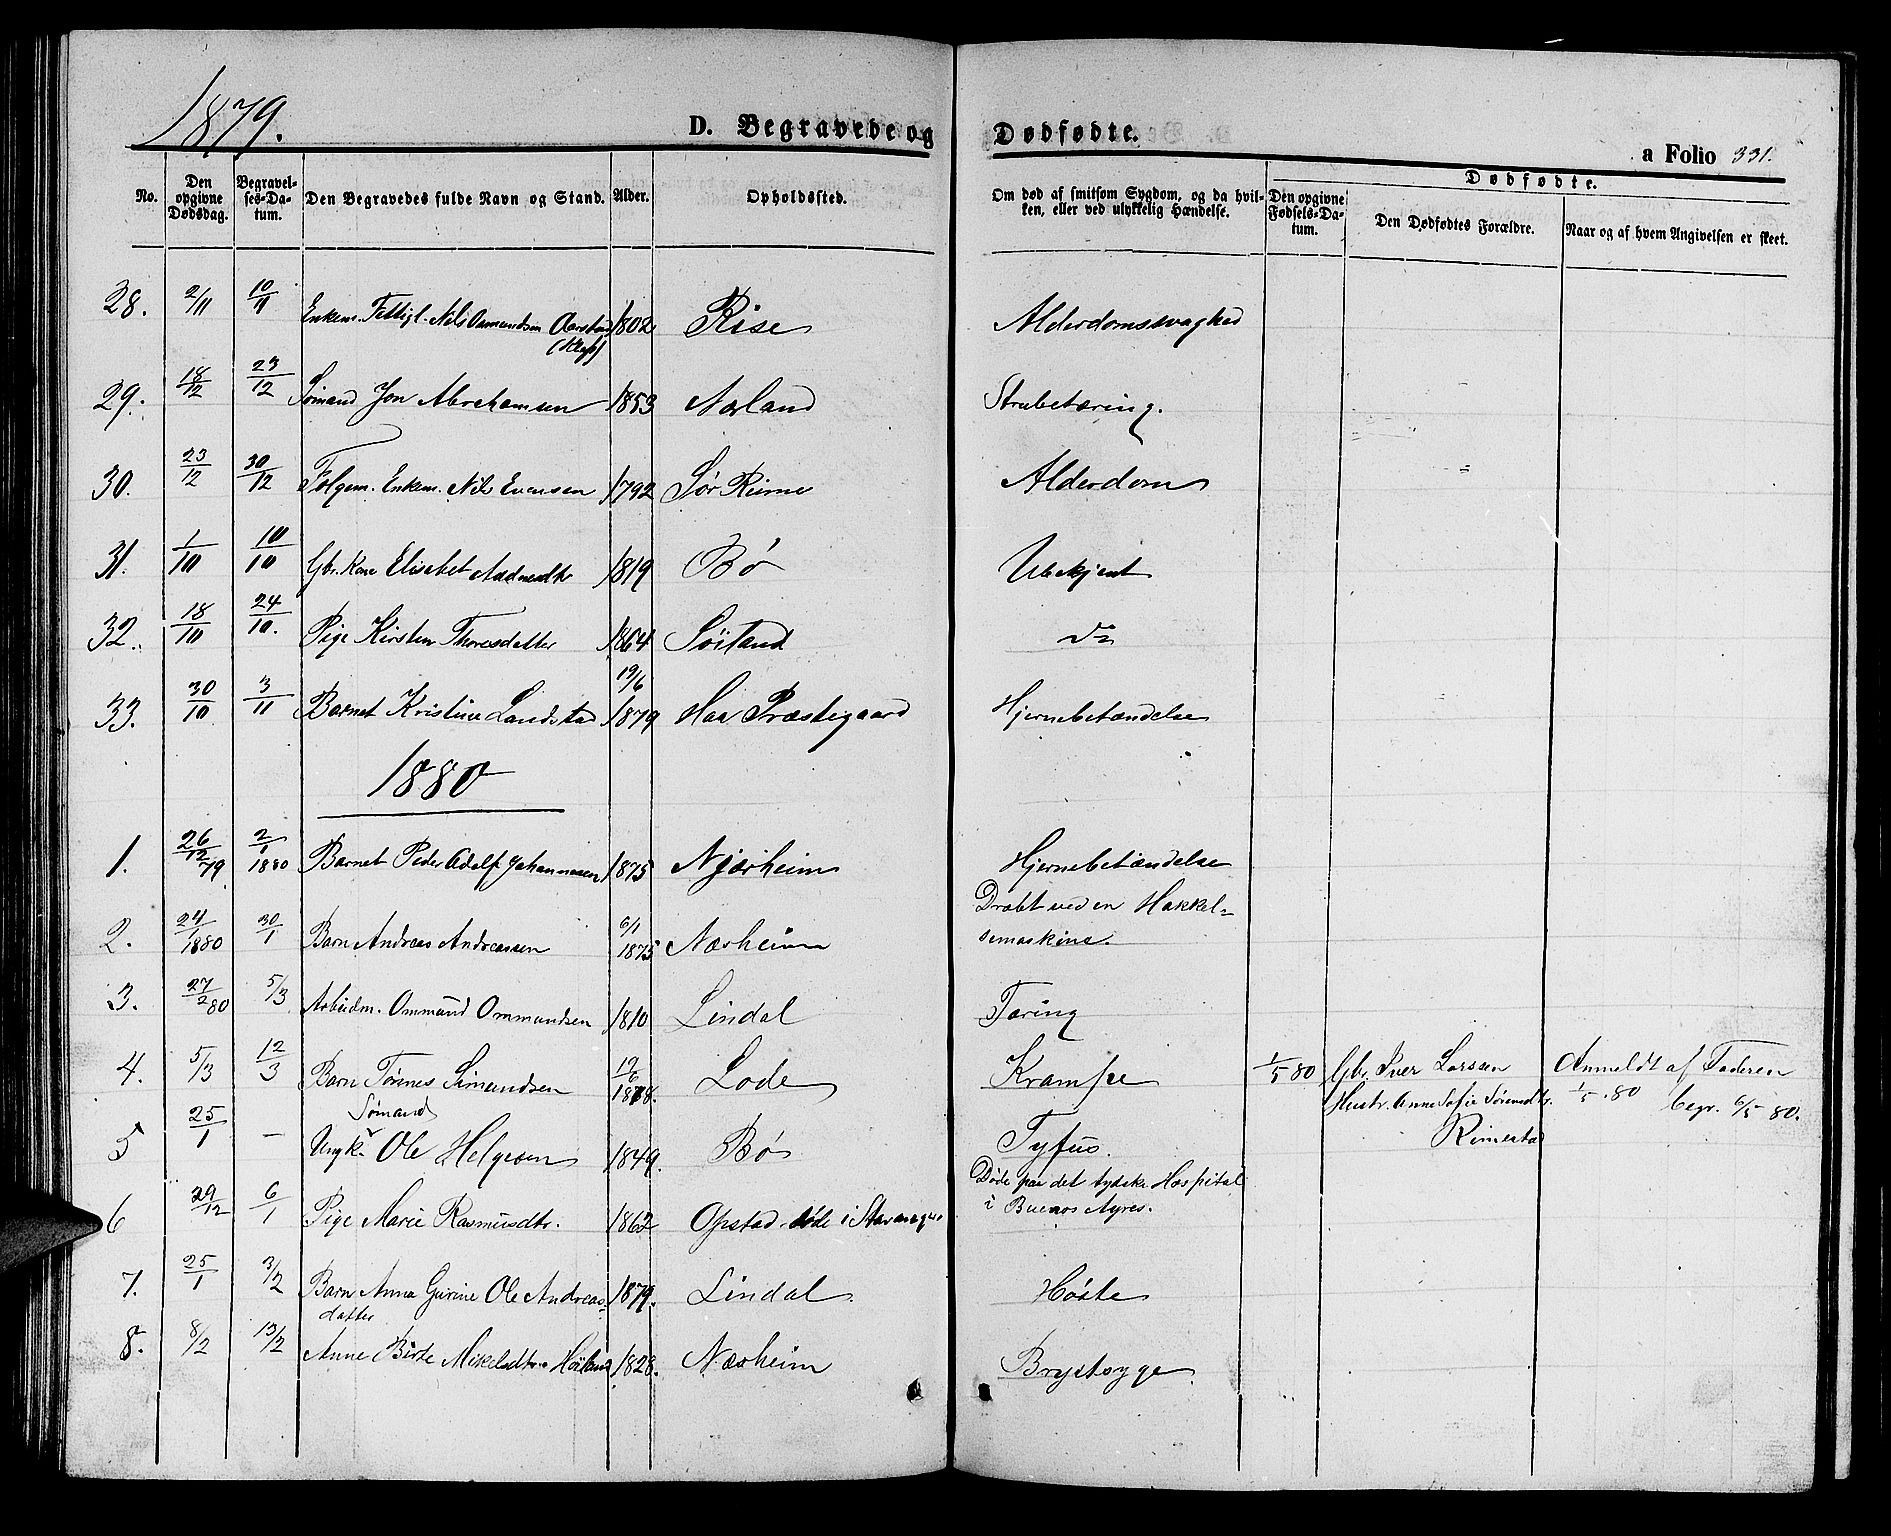 1879.
D. Begravede og Dødfødte.
a Folio 331.
No.
Den opgivne Dødsdag.
Begravelses-Datum.
Den Begravedes fulde Navn og Stand.
Alder.
Opholdssted.
Om død af smitsom Sygdom, og da hvilken, eller ved ulykkelig Hændelse.
Dødfødte.
Den opgivne Fødsels-Datum.
Den Dødfødtes Forældre.
Naar og af hvem Angivelsen er skeet.
28. 2/11 10/11 Enkem. Fattigl. Nils Osmundsen Aarstad 1802 Rise Alderdomssvaghed
(Klep)
29. 18/12 23/12 Sømand Jon Abrahamsen 1853 Narland Strubetæring.
30. 23/12 30/12 Følgem. Enkem. Nils Evensen 1792 Sør Rieme Alderdom
31. 1/10 10/10 Gbr. Kone Elisabet Aadnesdtr 1819 Bø Ubekjent
32. 18/10 24/10. Pige Kirsten Thoresdatter 1864 Søiland do
33. 30/10 3/11 Barnet Kristine Landstad 19/6 1879 Haa Præstegaard Hjernebetændelse
1880
1. 26/12 79 2/1 1880 Barnet Peder Adolf Johannessen 1875 Njærheim Hjernebetændelse
2. 24/1 1880 30/1 Barn Andreas Andreassen 6/1 1875 Nærheim Dræbt ved en Hakkel=
semaskine.
3. 27/2 80 5/3 Arbeidm. Ommund Ommundsen 1810 Lindal Tæring
4. 5/3 12/3 Barn Tønnes Simundsen 1878. Lode Krampe 1/5 80 Gbr. Iver Larssen Anmeldt af Faderen
Hustr. Anne Sofie Sørensdtr. 1/5 . 80 begr. 6/5 80.
Rimestad
Sømand
5 25/1 — Ungk. Ole Helgesen 1849. Bø Tyfus.
Døde paa det tydske Hospital
i Buenos Ayres.
6 29/12 6/1 Pige Marie Rasmusdtr. 1862 Opstad døde i Stavanger
7. 25/1 3/2 Barn Anna Gurine Ole Andreas= 1879. Lindal Høste
datter
8. 8/2 13/2 Anne Birte Mikelsdtr. Høiland 1828. Nærheim Brystsyge